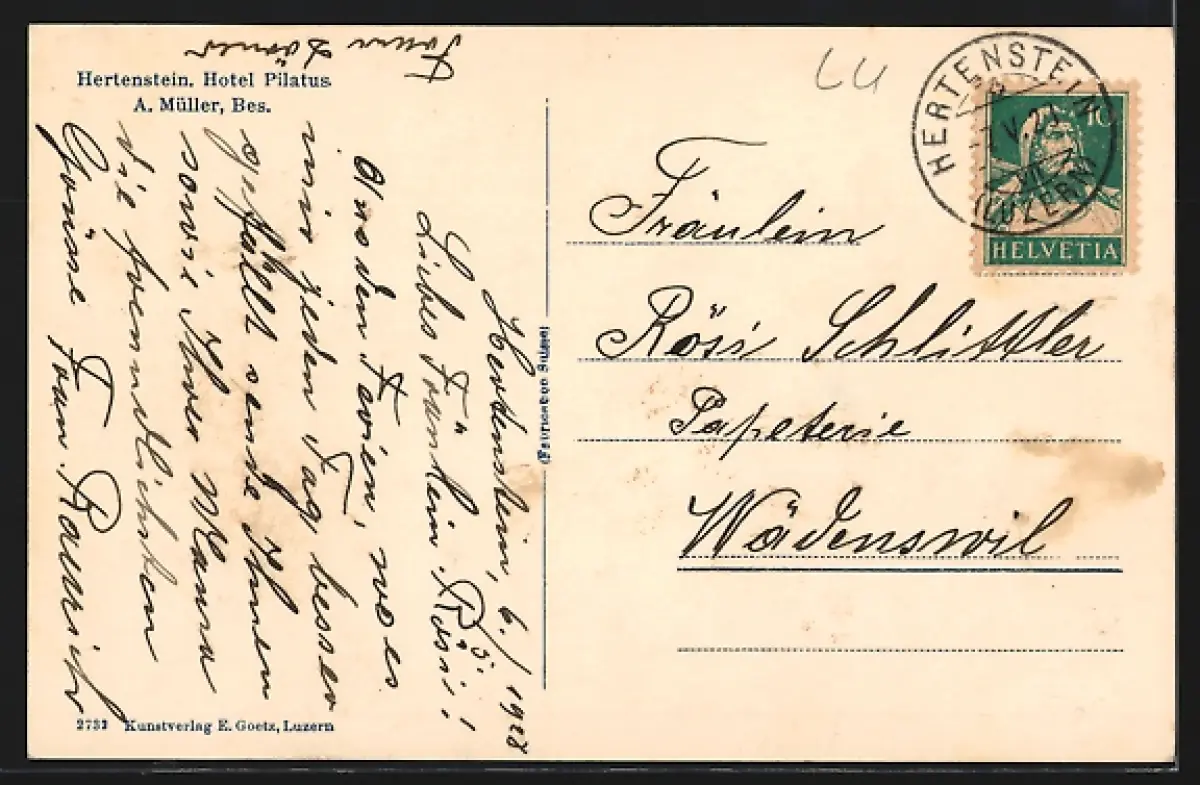 Hertenstein. Hotel Pilatus
A. Müller, Bes.
Hertenstein, 6./ 1928
Liebes Fräulein Rösi!
Aus den Ferien, wo es
mir jeden Tag besser
gefällt sende Ihnen
sowie Ihrer Mama
die freundlichsten
Grüsse Frau
LU
HERTENSTEIN
(LUZERN)
10
HELVETIA
Fräulein
Rösi Schlittler
Papeterie
Wädenswil
2733 Kunstverlag E. Goetz, Luzern